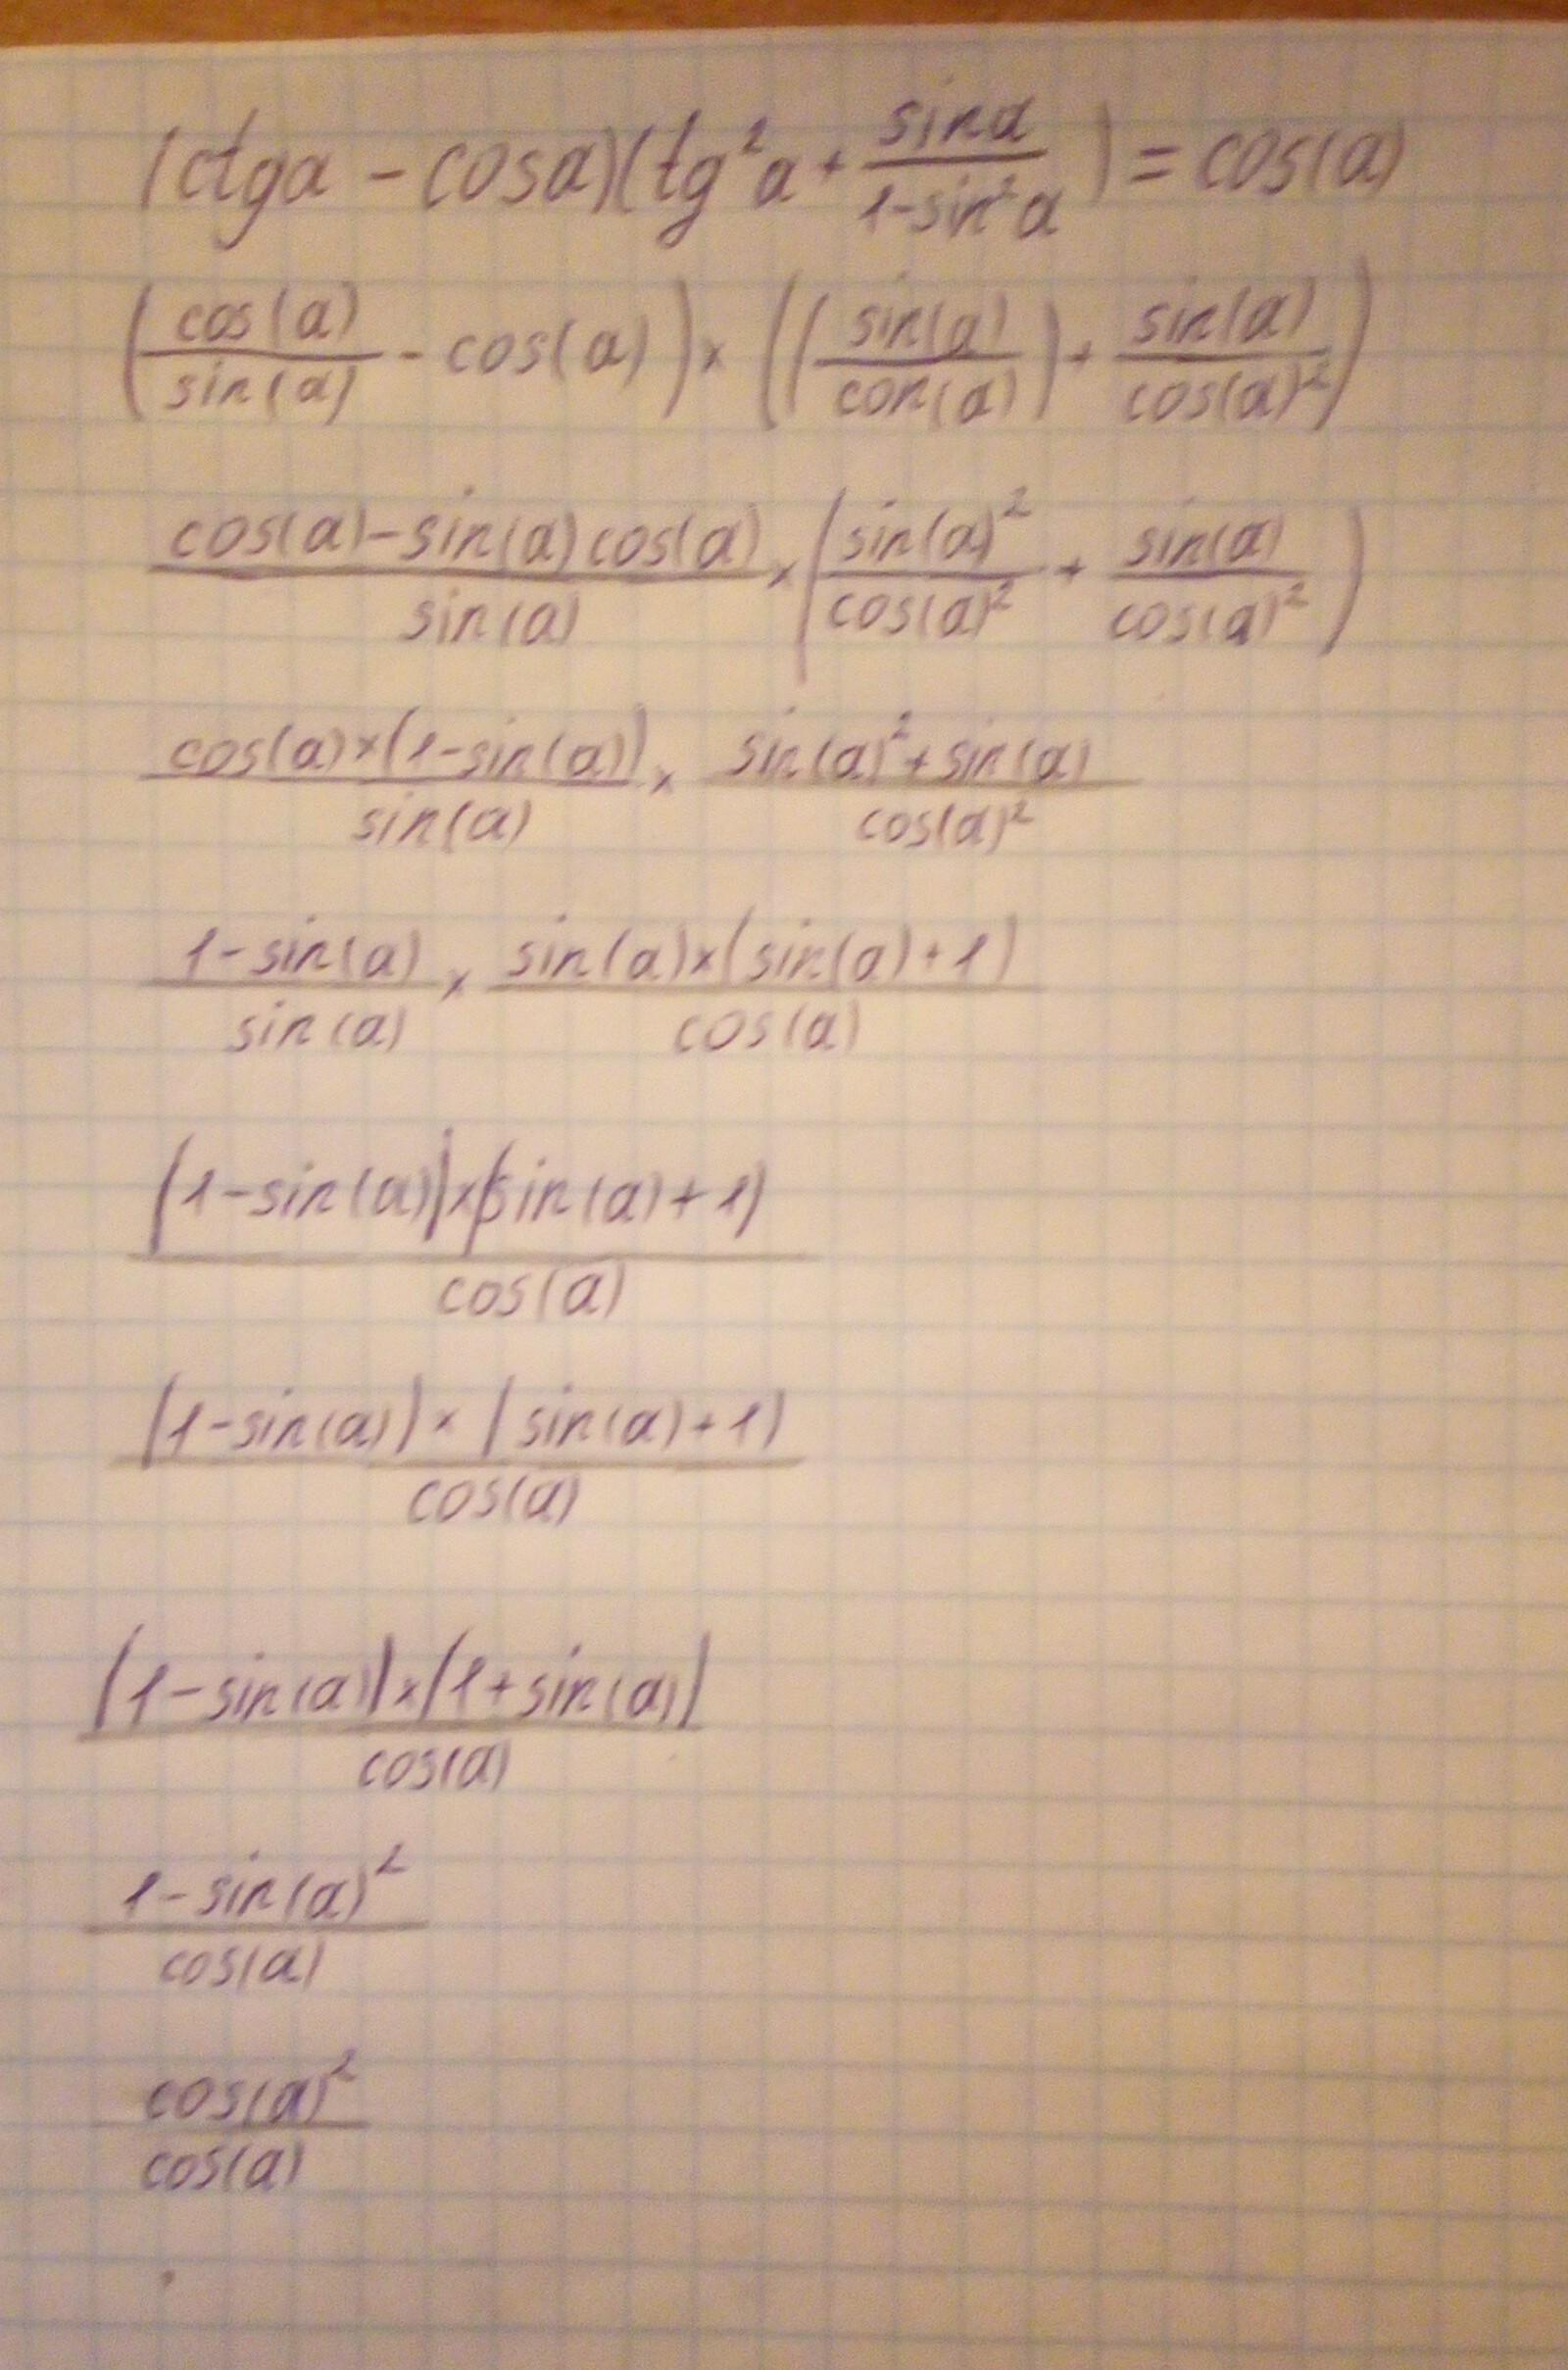 (ctga - cosa)(tg²a + sina/(1-sin²a)) = cos(a)
(cos(a)/sin(a) - cos(a)) × ((sin(a)/con(a)) + sin(a)/cos(a)²)
(cos(a)-sin(a)cos(a))/sin(a) × (sin(a)²/cos(a)² + sin(a)/cos(a)²)
cos(a)×(1-sin(a))/sin(a) × (sin(a)²+sin(a))/cos(a)²
(1-sin(a))/sin(a) × sin(a)×(sin(a)+1)/cos(a)
(1-sin(a))×(sin(a)+1)/cos(a)
(1-sin(a))×(sin(a)+1)/cos(a)
(1-sin(a))×(1+sin(a))/cos(a)
(1-sin(a)²)/cos(a)
cos(a)²/cos(a)